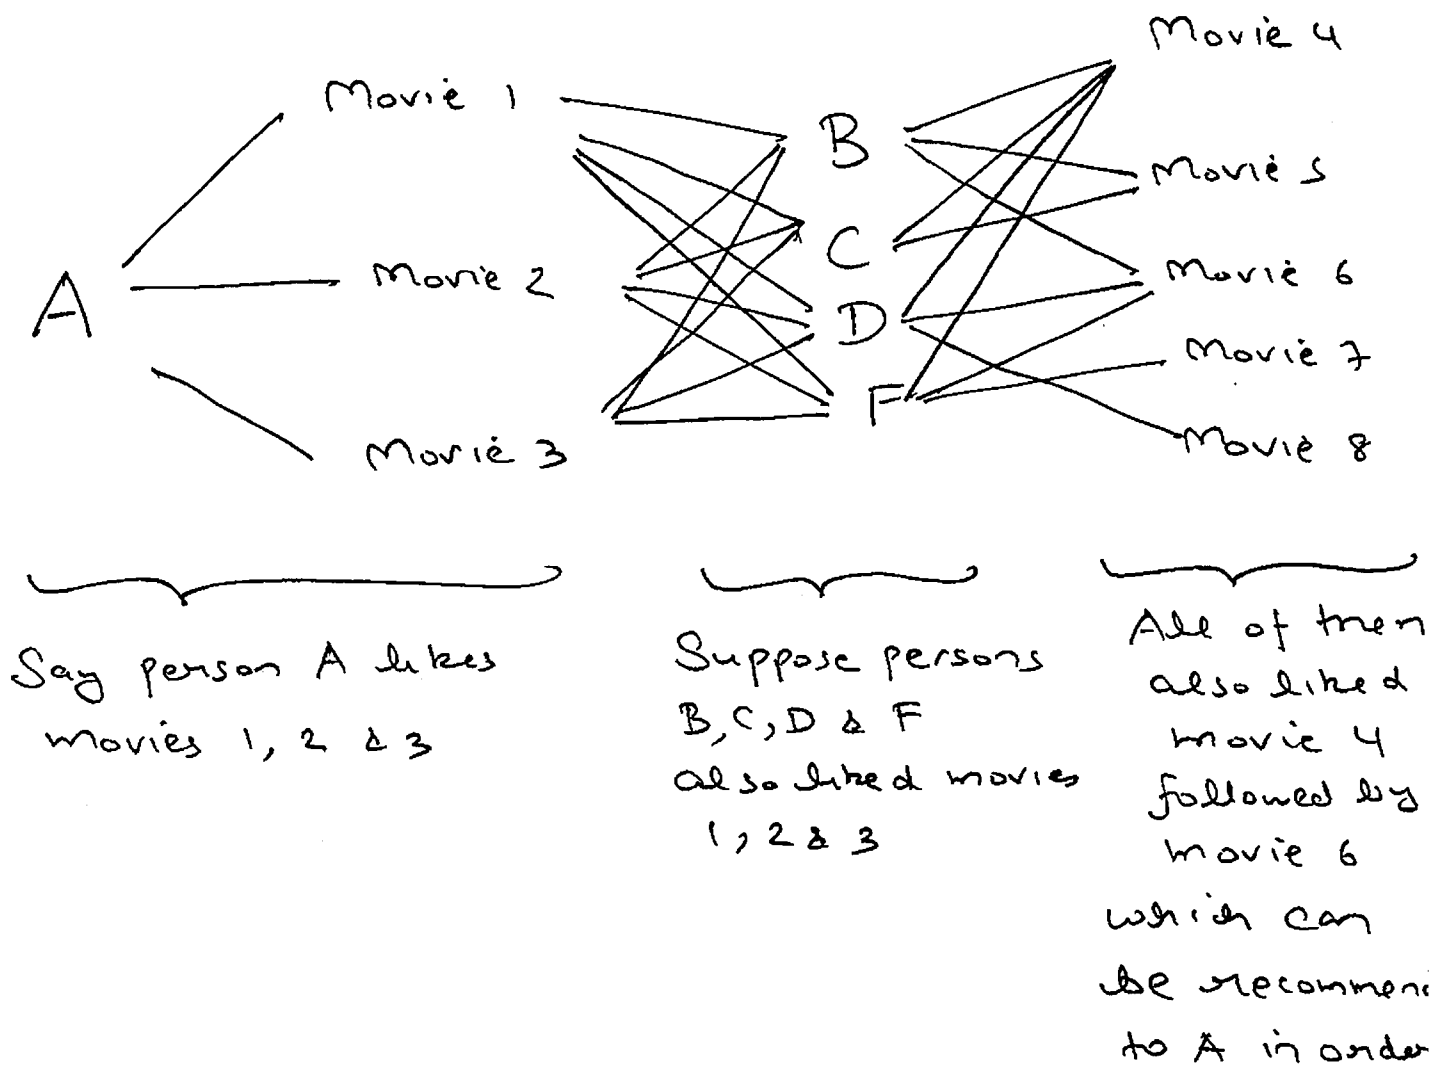 Movie 4
Movie 1
B
Movie 5
C
A
Movie 2
Movie 6
D
Movie 7
F
Movie 3
Movie 8
Say person A likes
movies 1, 2 & 3
Suppose persons
B, C, D & F
also liked movies
1, 2 & 3
All of them
also liked
movie 4
followed by
movie 6
which can
be recommen
to A in order